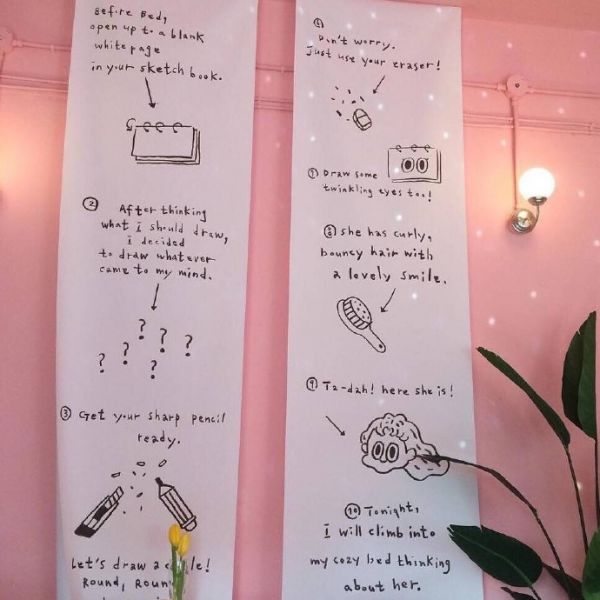 Before Bed,
open up to a blank
white page
in your sketch book.
② After thinking
what I should draw,
I decided
to draw whatever
came to my mind.
? ? ? ? ? ?
③ Get your sharp pencil
ready.
Let's draw a
Round,
Don't worry.
Just use your eraser!
⑦ Draw some
twinkling eyes too!
⑧ She has curly,
bouncy hair with
a lovely smile.
⑨ Ta-dah! here she is!
⑩ Tonight,
I will climb into
my cozy bed thinking
about her.